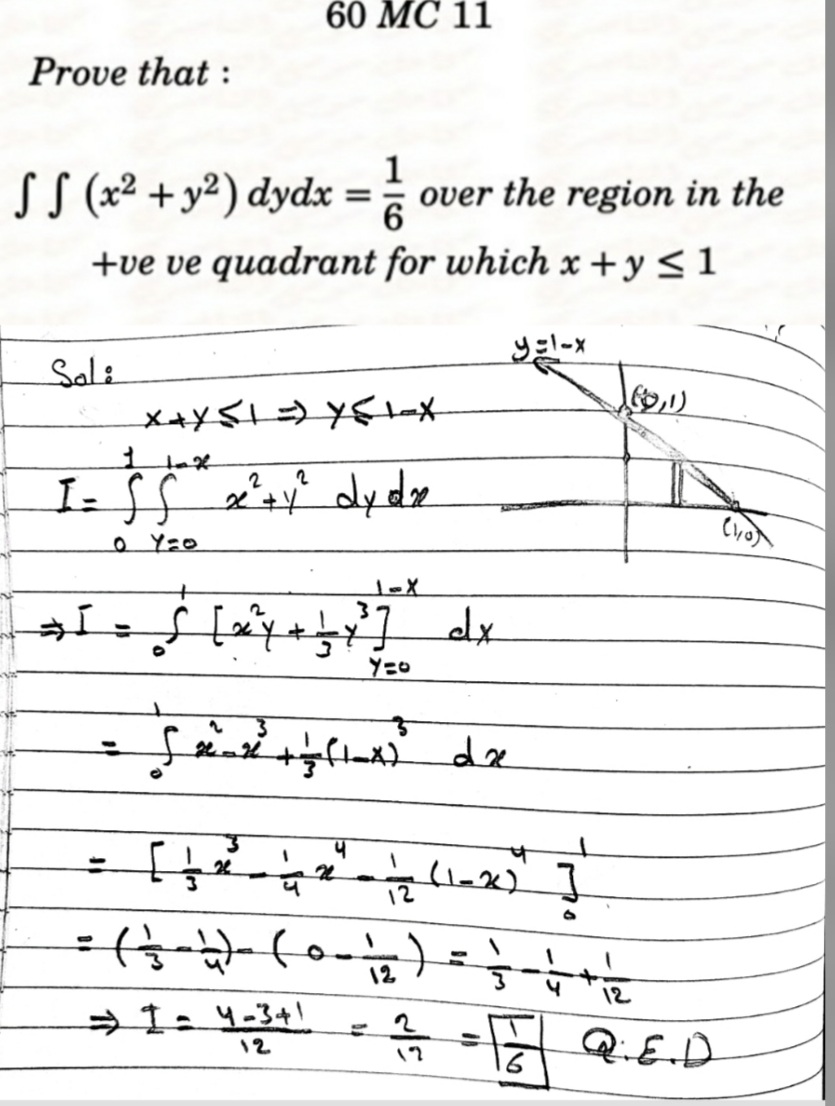 60 MC 11
Prove that :
∫ ∫ (x² + y²) dydx = 1/6 over the region in the
+ve ve quadrant for which x + y ≤ 1
Sol:
y=1-x
x+y≤1 ⇒ y≤1-x
(0,1)
I = ∫₀¹ ∫_{y=0}^{1-x} x²+y² dy dx
(1,0)
⇒ I = ∫₀¹ [x²y + 1/3 y³]_{y=0}^{1-x} dx
= ∫₀¹ x²-x³+1/3(1-x)³ dx
= [1/3 x³ - 1/4 x⁴ - 1/12 (1-x)⁴]₀¹
= (1/3 - 1/4) - (0 - 1/12) = 1/3 - 1/4 + 1/12
⇒ I = 4-3+1/12 = 2/12 = 1/6 Q.E.D